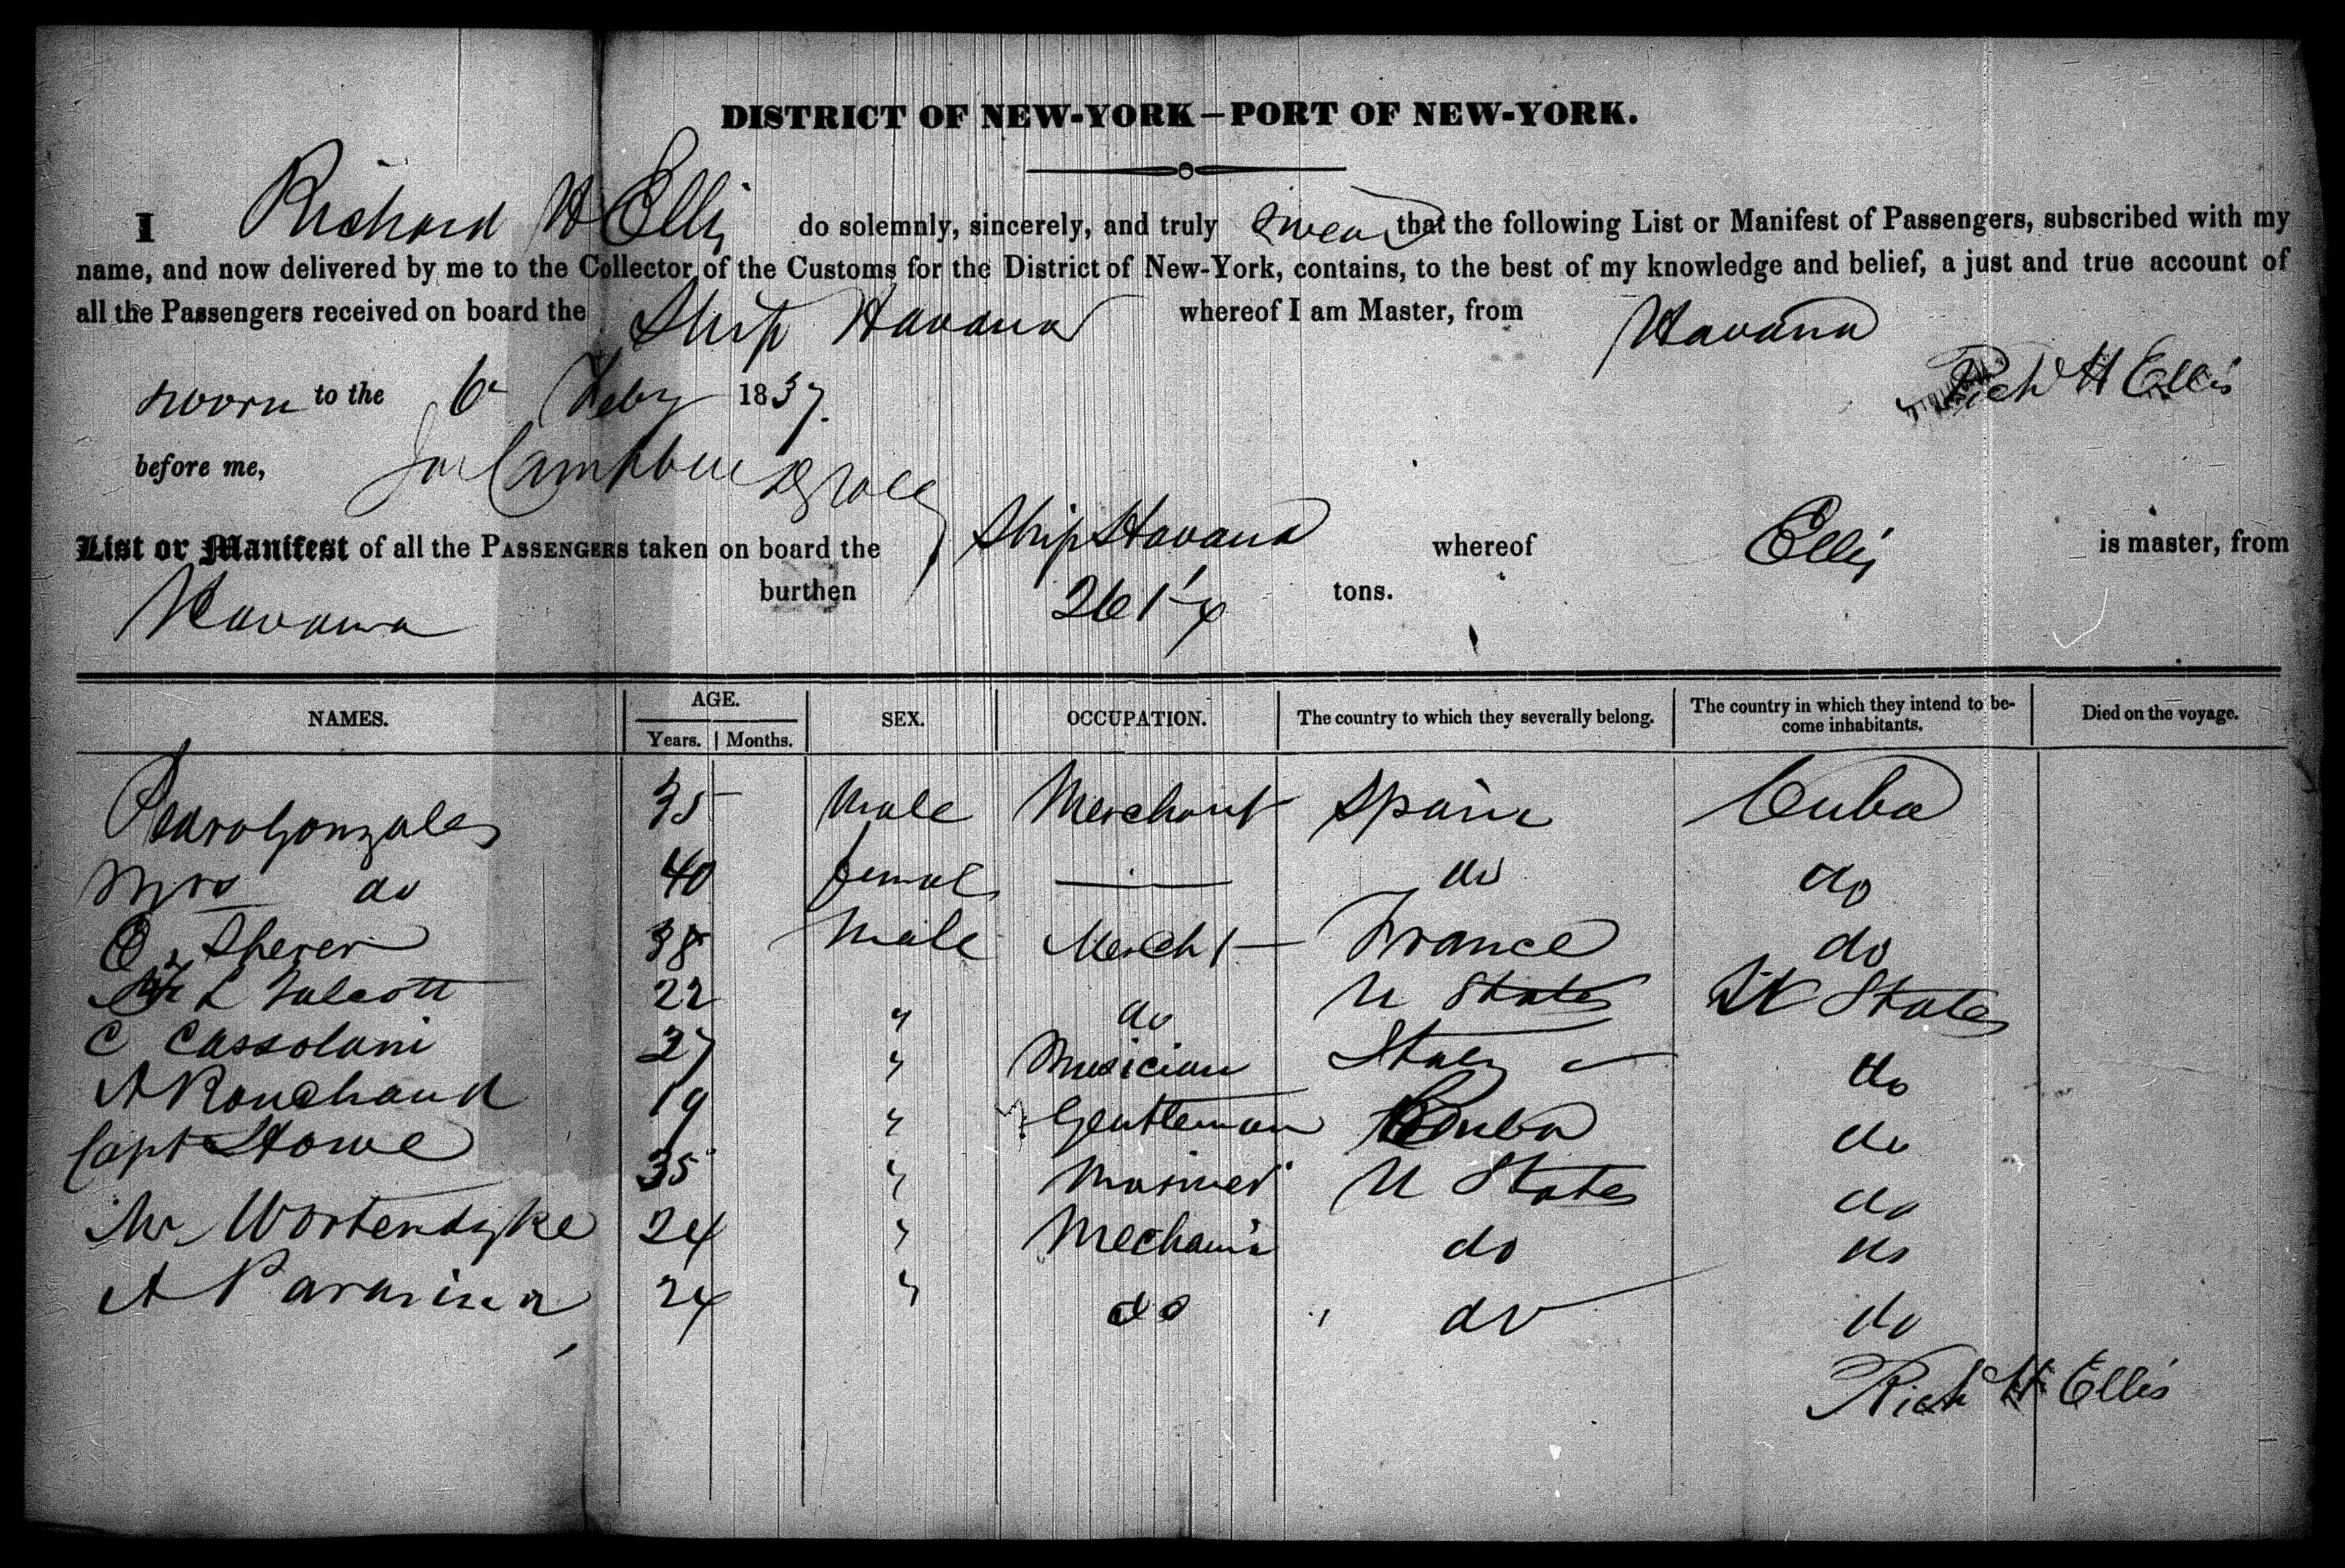 DISTRICT OF NEW-YORK—PORT OF NEW-YORK.
I Richard H Ellis do solemnly, sincerely, and truly swear that the following List or Manifest of Passengers, subscribed with my
name, and now delivered by me to the Collector of the Customs for the District of New-York, contains, to the best of my knowledge and belief, a just and true account of
all the Passengers received on board the Ship Havana whereof I am Master, from Havana
sworn to the 6 Feby 1837. Rich H Ellis
before me,
List or Manifest of all the PASSENGERS taken on board the Ship Havana whereof Ellis is master, from
Havana burthen tons.
NAMES. AGE. Years. Months. SEX. OCCUPATION. The country to which they severally belong. The country in which they intend to become inhabitants. Died on the voyage.
Pedro Gonzales 35 Male Merchant Spain Cuba
Mrs do 40 female — do do
Sherer 38 Male Mercht France do
L Talcott 22 " do U States U States
C Cassolani 27 " Musician Italy do
A Rouchaud 19 " Gentleman Cuba do
Capt Stowe 35 " Mariner U States do
Mr Wortendyke 24 " Mechanic do do
A 24 " do " do do
Rich H Ellis